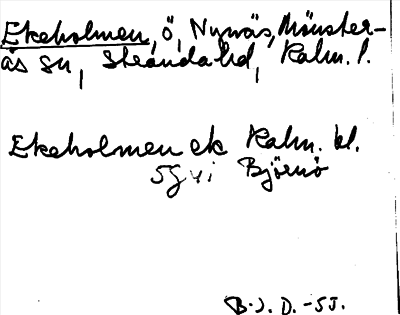 Ekeholmen, ö, Nynäs, Mönster-
ås sn, Stranda hd, Kalm. l.
Ekeholmen ek Kalm. bl.
5G Björnö
B.J. D. -55.